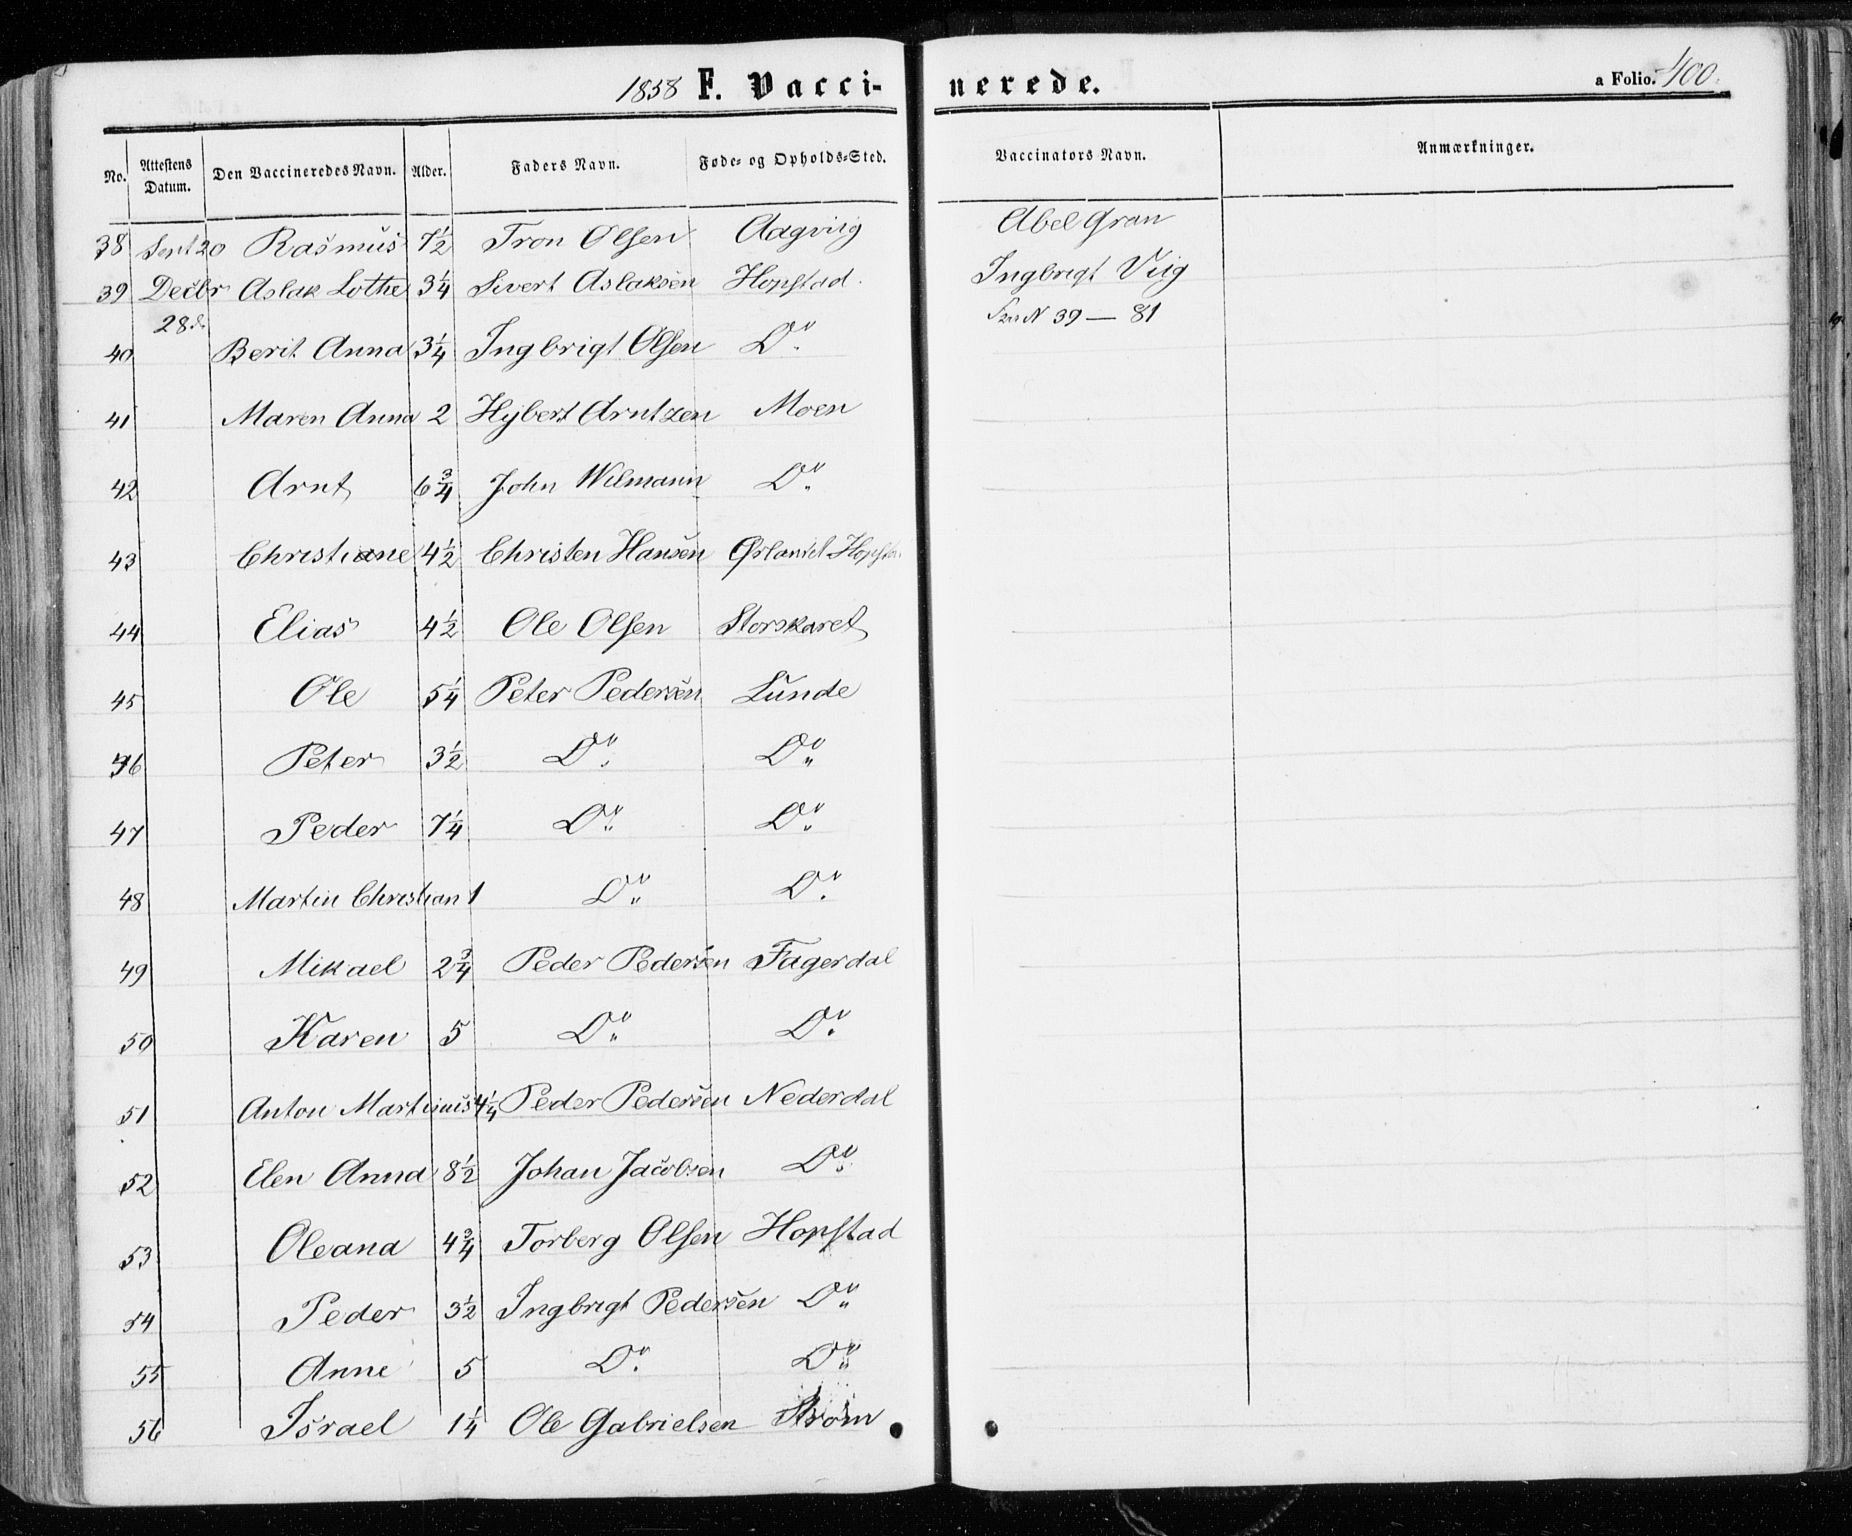 1858 F. Vacci- nerede. a Folio. 400.
No. Attestens Datum. Den Vaccineredes Navn. Alder. Faders Navn. Føde- og Opholds-Sted. Vaccinators Navn. Anmærkninger.
38 Sept 20 Rasmus 7 1/2 Tron Olsen Aagviig Abel Gran
39 Decbr Aslak Lothe 3 1/4 Sivert Aslaksen Hopstad. Ingbrigt Viig
28d N 39 — 81
40 Berit Anna 3 1/4 Ingbrigt Olsen Do
41 Maren Anna 2 Hybert Arntzen Moen
42 Arnt 6 3/4 John Wilmann Do
43 Christiane 4 1/2 Christen Hansen Ørlandet
44 Elias 4 1/2 Ole Olsen Storskaret
45 Ole 5 1/4 Peter Pedersen Lunde
46 Peter 3 1/2 Do Do
47 Peder 7 1/4 Do Do
48 Martin Christian 1 Do Do
49 Mikael 2 3/4 Peder Pedersen Fagerdal
50 Karen 5 Do Do
51 Anton Martinus 4 1/4 Peder Pedersen Nederdal
52 Elen Anna 8 1/2 Johan Jacobsen Do
53 Oleana 4 3/4 Torberg Olsen Hopstad
54 Peder 3 1/2 Ingbrigt Pedersen Do
55 Anne 5 Do Do
56 Israel 1 1/4 Ole Gabrielsen Strøm